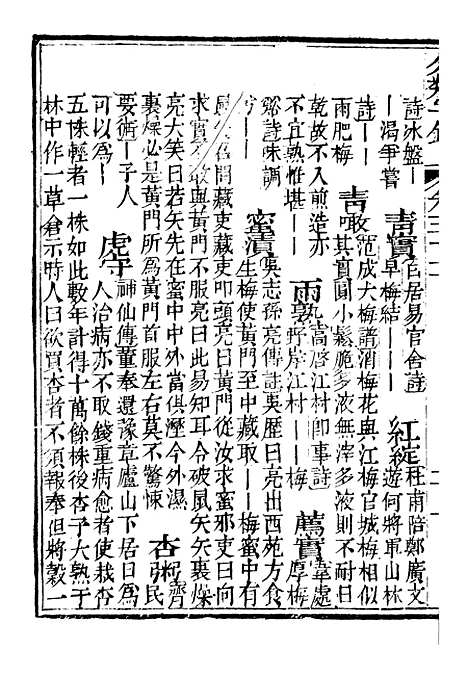 詩冰盤丨
丨渴爭嘗
青實
白居易官舍詩
早梅結丨丨
紅綻
杜甫陪鄭廣文
遊何將軍山林
詩丨丨
雨肥梅
青啖
范成大梅譜消梅花與江梅官城梅相似
其實圓小鬆脆多液無滓多液則不耐日
乾故不入煎造亦
不宜熟惟堪丨丨
雨熟
高啓江村即事詩
野岸江村丨丨梅
薦實
韋處
厚梅
谿詩味調
丨丨
蜜漬
吳志孫亮傳註吳歷曰亮出西苑方食
生梅使黃門至中藏取丨丨梅蜜中有
鼠矢召問藏吏藏吏叩頭亮曰黃門從汝求蜜邪吏曰向
求實不敢與黃門不服亮曰此易知耳令破鼠矢矢裏燥
亮大笑曰若矢先在蜜中中外當俱溼今外濕
裏燥必是黃門所為黃門首服左右莫不驚悚
杏粥
齊
民
要術丨丨子人
可以為丨丨
虎守
神仙傳董奉還豫章廬山下居日為
人治病亦不取錢重病愈者使栽杏
五株輕者一株如此數年計得十萬餘株後杏子大熟于
林中作一草倉示時人曰欲買杏者不須報奉但將穀一